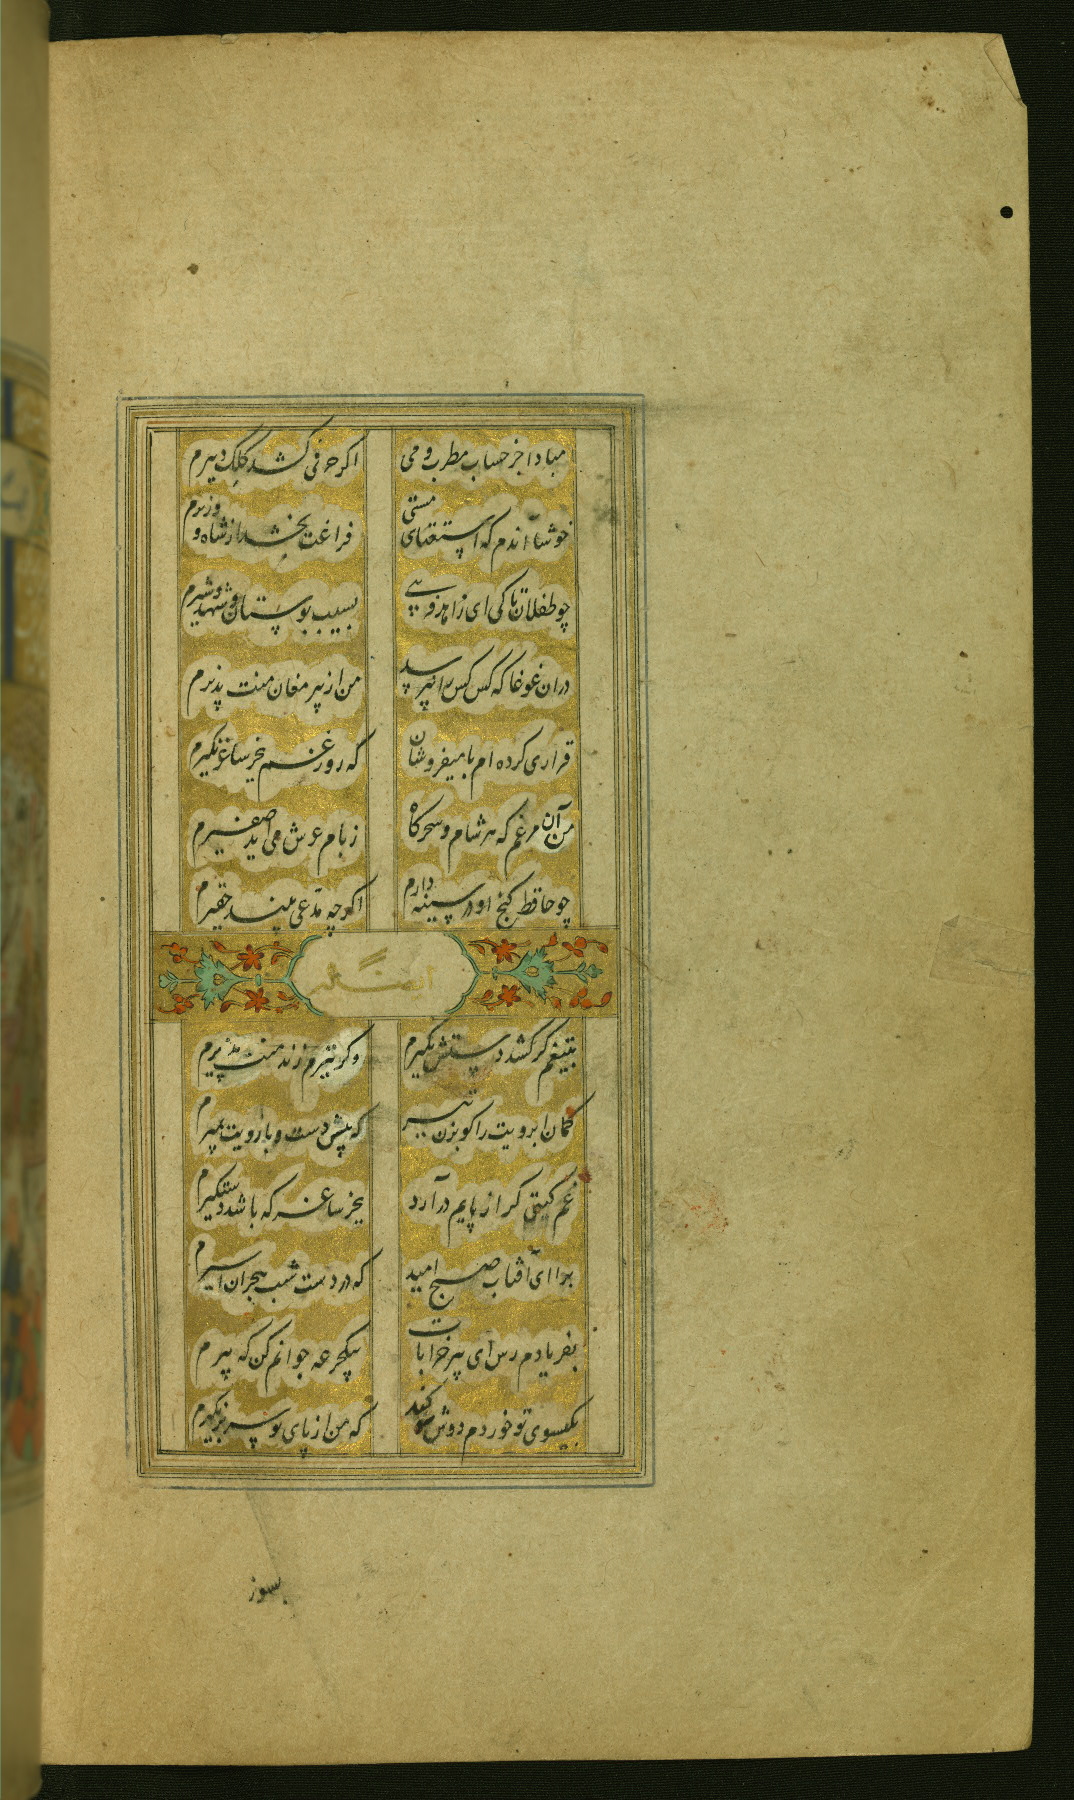 مبادا جز حساب مطرب و می اگر حرفی کشد کلک دبیرم
خوشا اندم که استغنای مستی فراغت بخشد از شاه و وزیرم
چو طفلان تا کی ای زاهد فریبی بسیب بوستان و شهد و شیرم
دران غوغا که کس کس را نپرسد من از پیر مغان منت پذیرم
قراری کرده ام با میفروشان که روز غم بجز ساغر نگیرم
من آن مرغم که هر شام و سحرگاه ز بام عرش می آید صفیرم
چو حافظ گنج او در سینه دارم اگرچه مدعی بیند حقیرم
ایضاً له
بتیغم گر کشد دستش نگیرم وگر تیرم زند منت پذیرم
کمان ابرویت را گو بزن تیر که پیش دست و بازویت بمیرم
غم گیتی گر از پایم درآرد بجز ساغر که باشد دستگیرم
برا ای آفتاب صبح امید که در دست شب هجران اسیرم
بفریادم رس ای پیر خرابات بیکجرعه جوانم کن که پیرم
بگیسوی تو خوردم دوش سوگند که من از پای تو سر بر نگیرم
بسوز